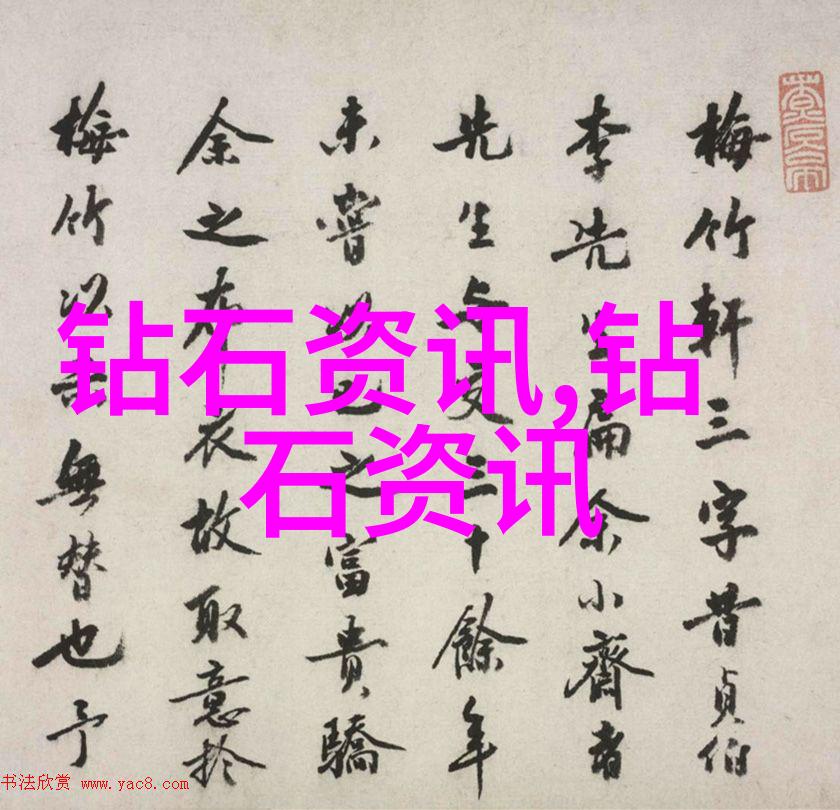 梅竹軒三字昔貞伯
李先生扁余小齋者
先生与交三十餘年
未嘗以己之富貴驕
余之布衣故取意於
梅竹以無替也予
钻石资讯,钻
石资讯
书法欣赏 www.yac8.com